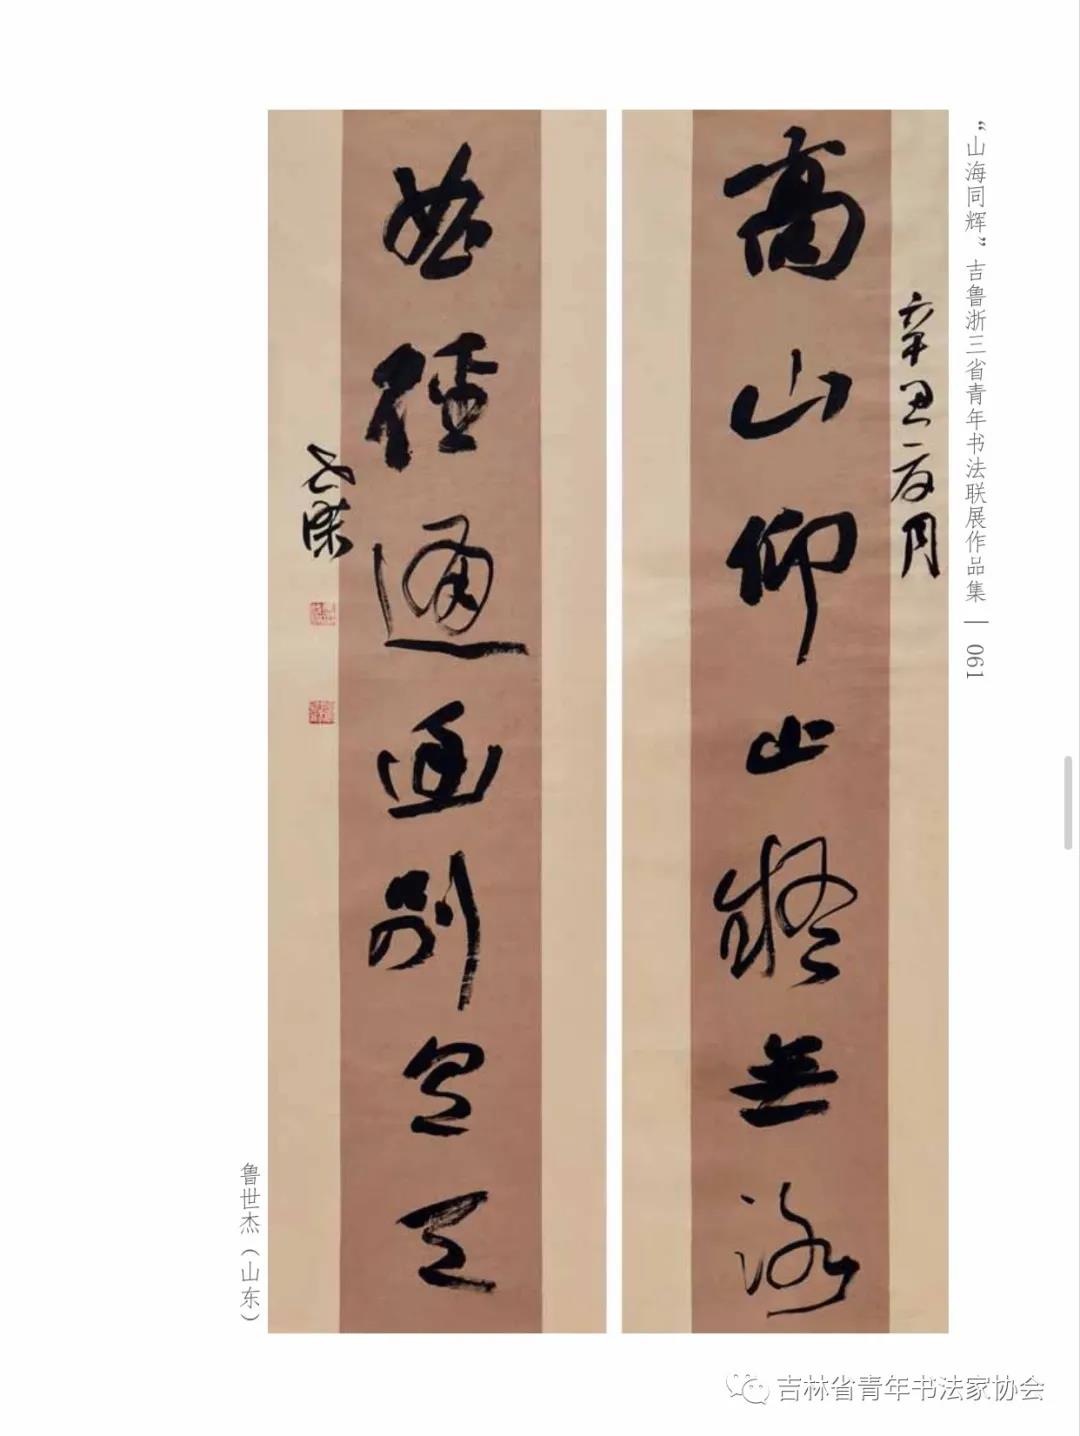 “山海同辉”吉鲁浙三省青年书法联展作品集 | 061
辛丑夏月
高山仰止疑無路
曲徑通幽別有天
世傑
鲁世杰（山东）
吉林省青年书法家协会